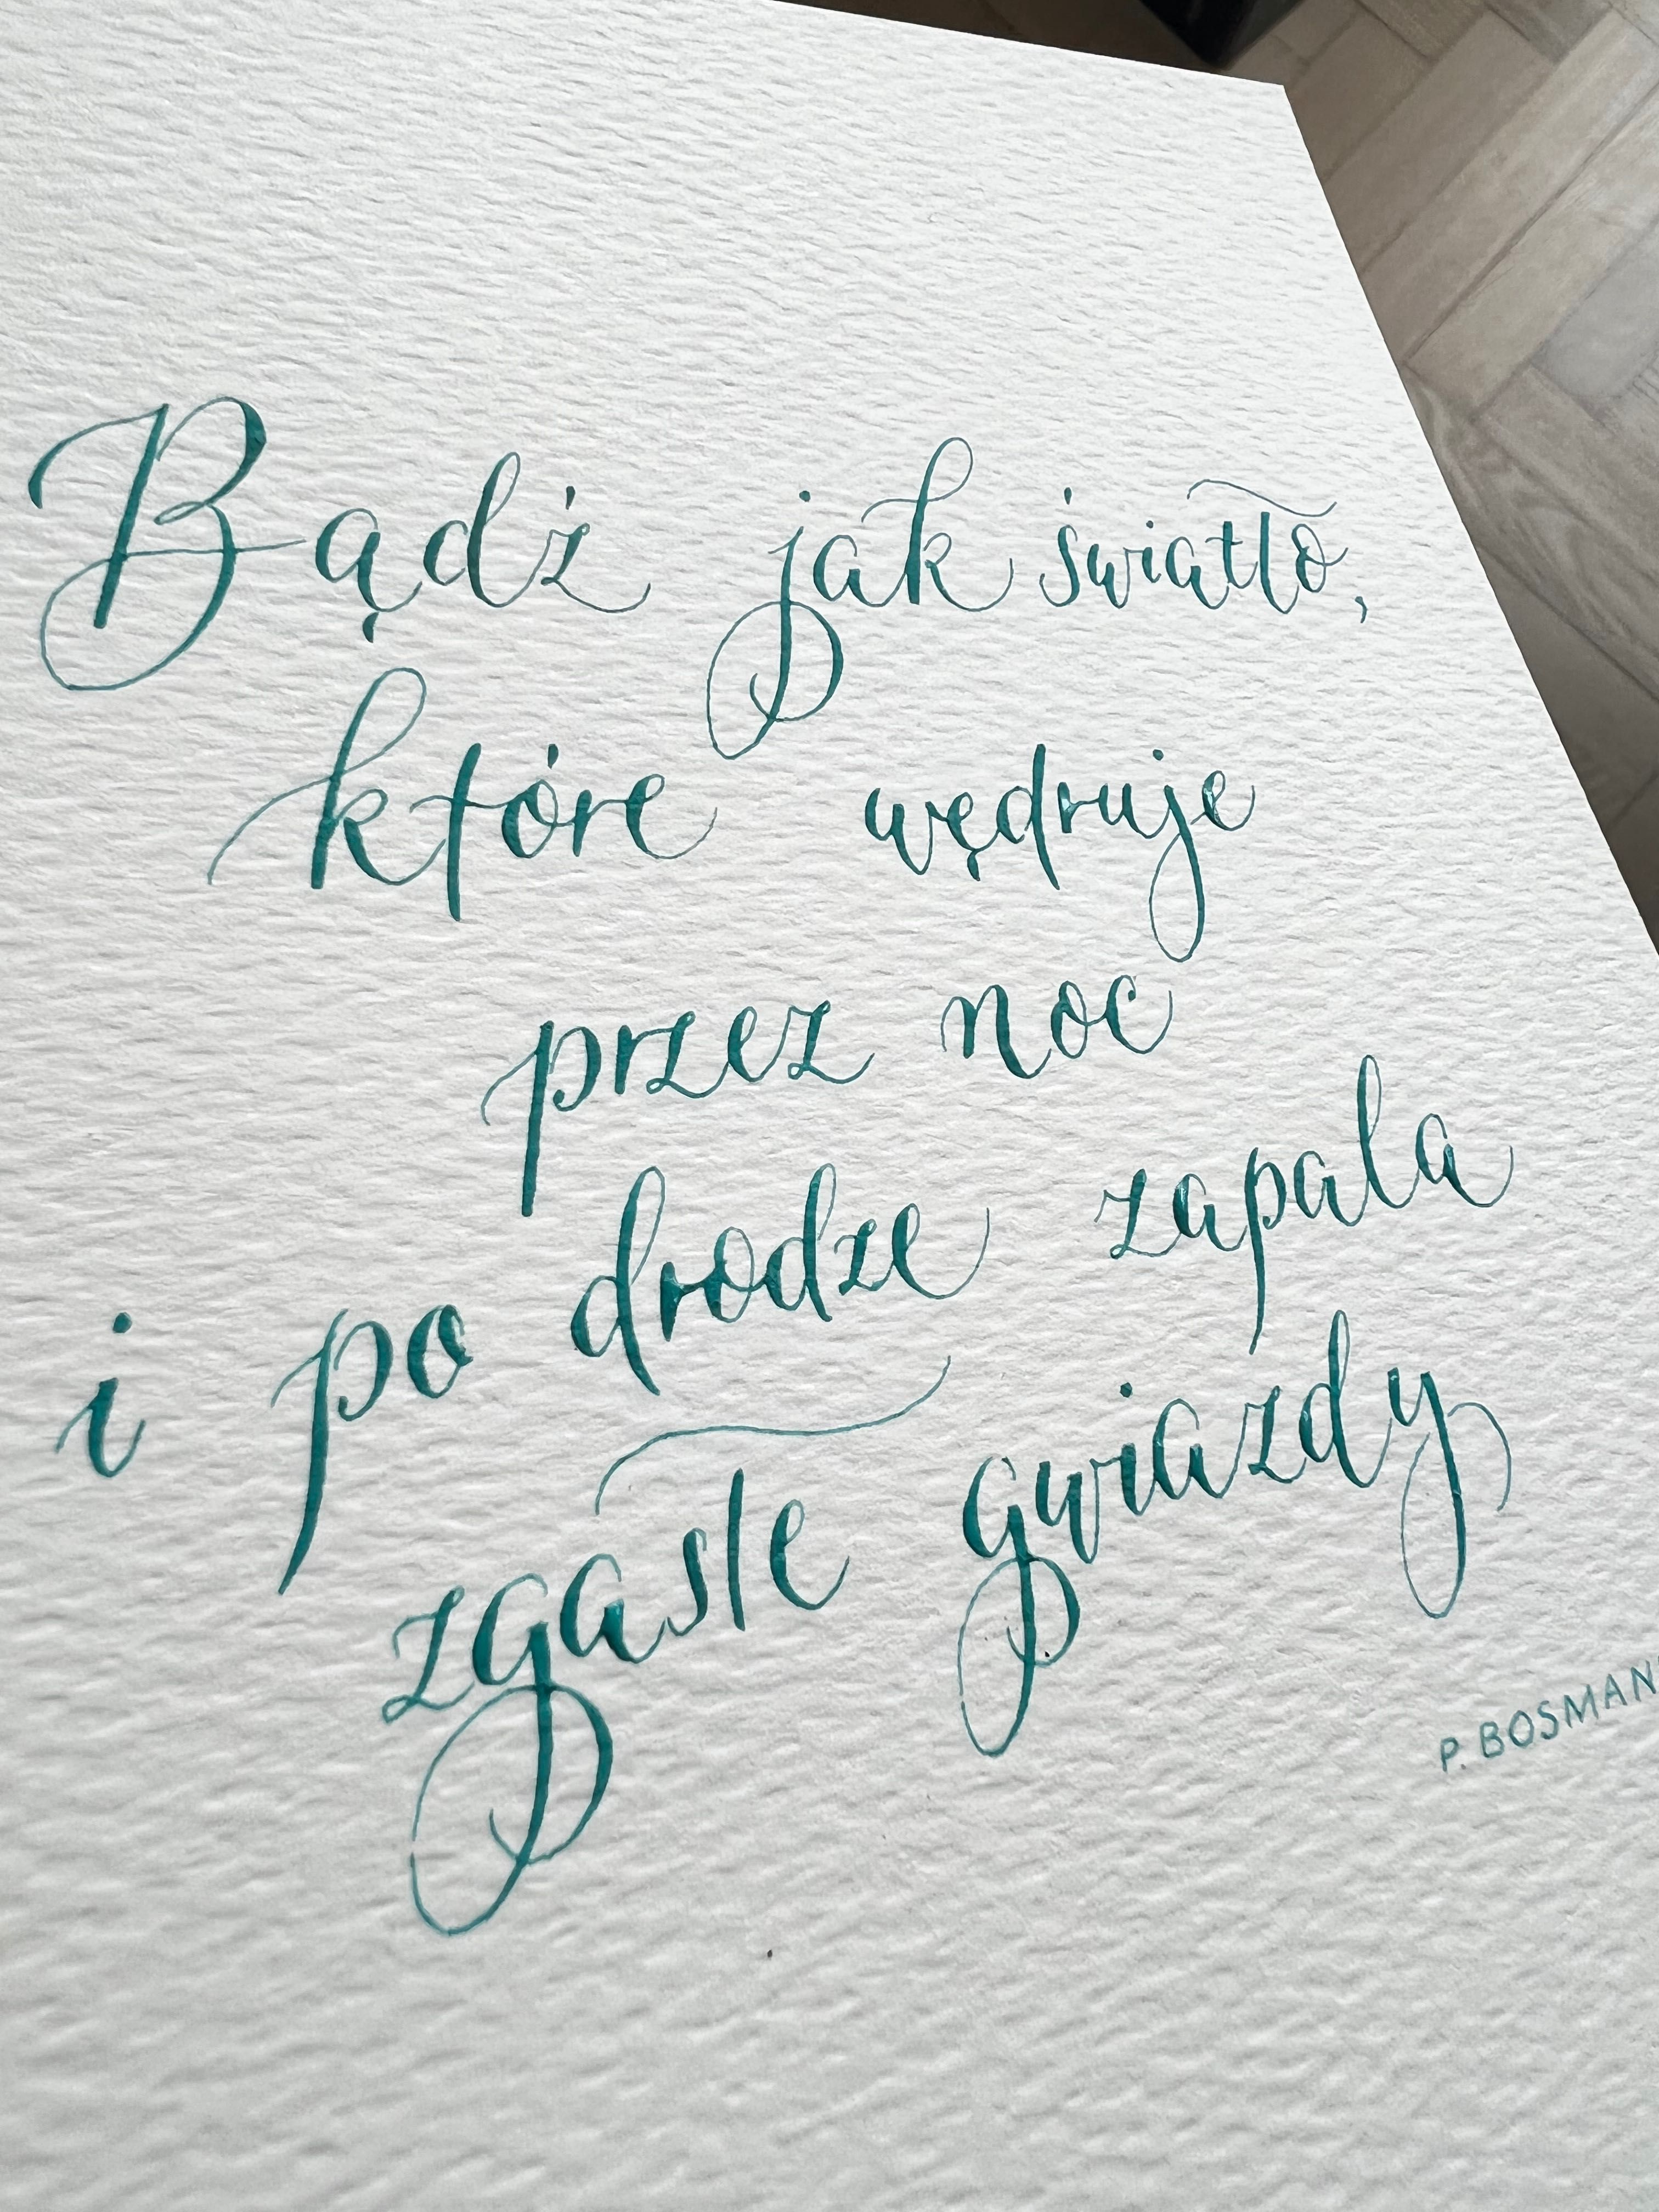 Bądź jak światło,
które wędruje
przez noc
i po drodze zapala
zgasłe gwiazdy
P. BOSMAN